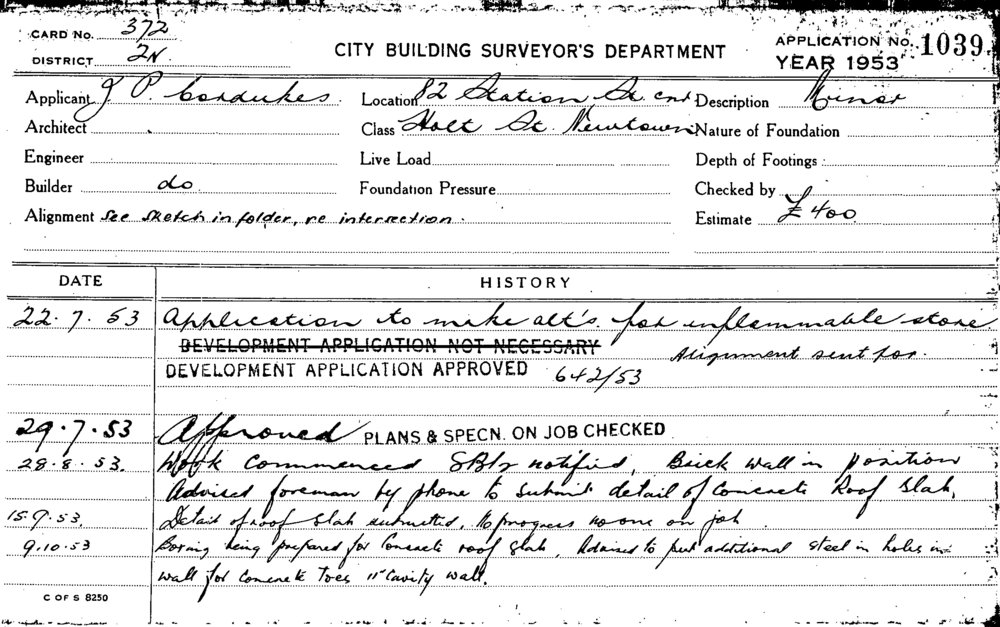 CARD No. 372
DISTRICT 2N.
CITY BUILDING SURVEYOR'S DEPARTMENT
APPLICATION No. 1039
YEAR 1953
Applicant J P. Cordukes. Location 82 Station St. cnr Description Minor
Architect Class Holt St. Newtown Nature of Foundation
Engineer Live Load Depth of Footings
Builder do Foundation Pressure Checked by
Alignment See sketch in folder, re intersection. Estimate £400
DATE HISTORY
22.7.53 Application to make alt's. for inflammable store
DEVELOPMENT APPLICATION NOT NECESSARY Alignment sent for.
DEVELOPMENT APPLICATION APPROVED 642/53
29.7.53 Approved PLANS & SPECN. ON JOB CHECKED
28.8.53. Work Commenced notified, Brick wall in position
Advised foreman by phone to submit detail of Concrete Roof Slab.
15.9.53. Detail of roof slab submitted. No progress no one on job.
9.10.53 Boxing being prepared for Concrete roof slab. Advised to put additional steel in holes in
wall for Concrete Toes 11" Cavity wall.
C OF S 8250